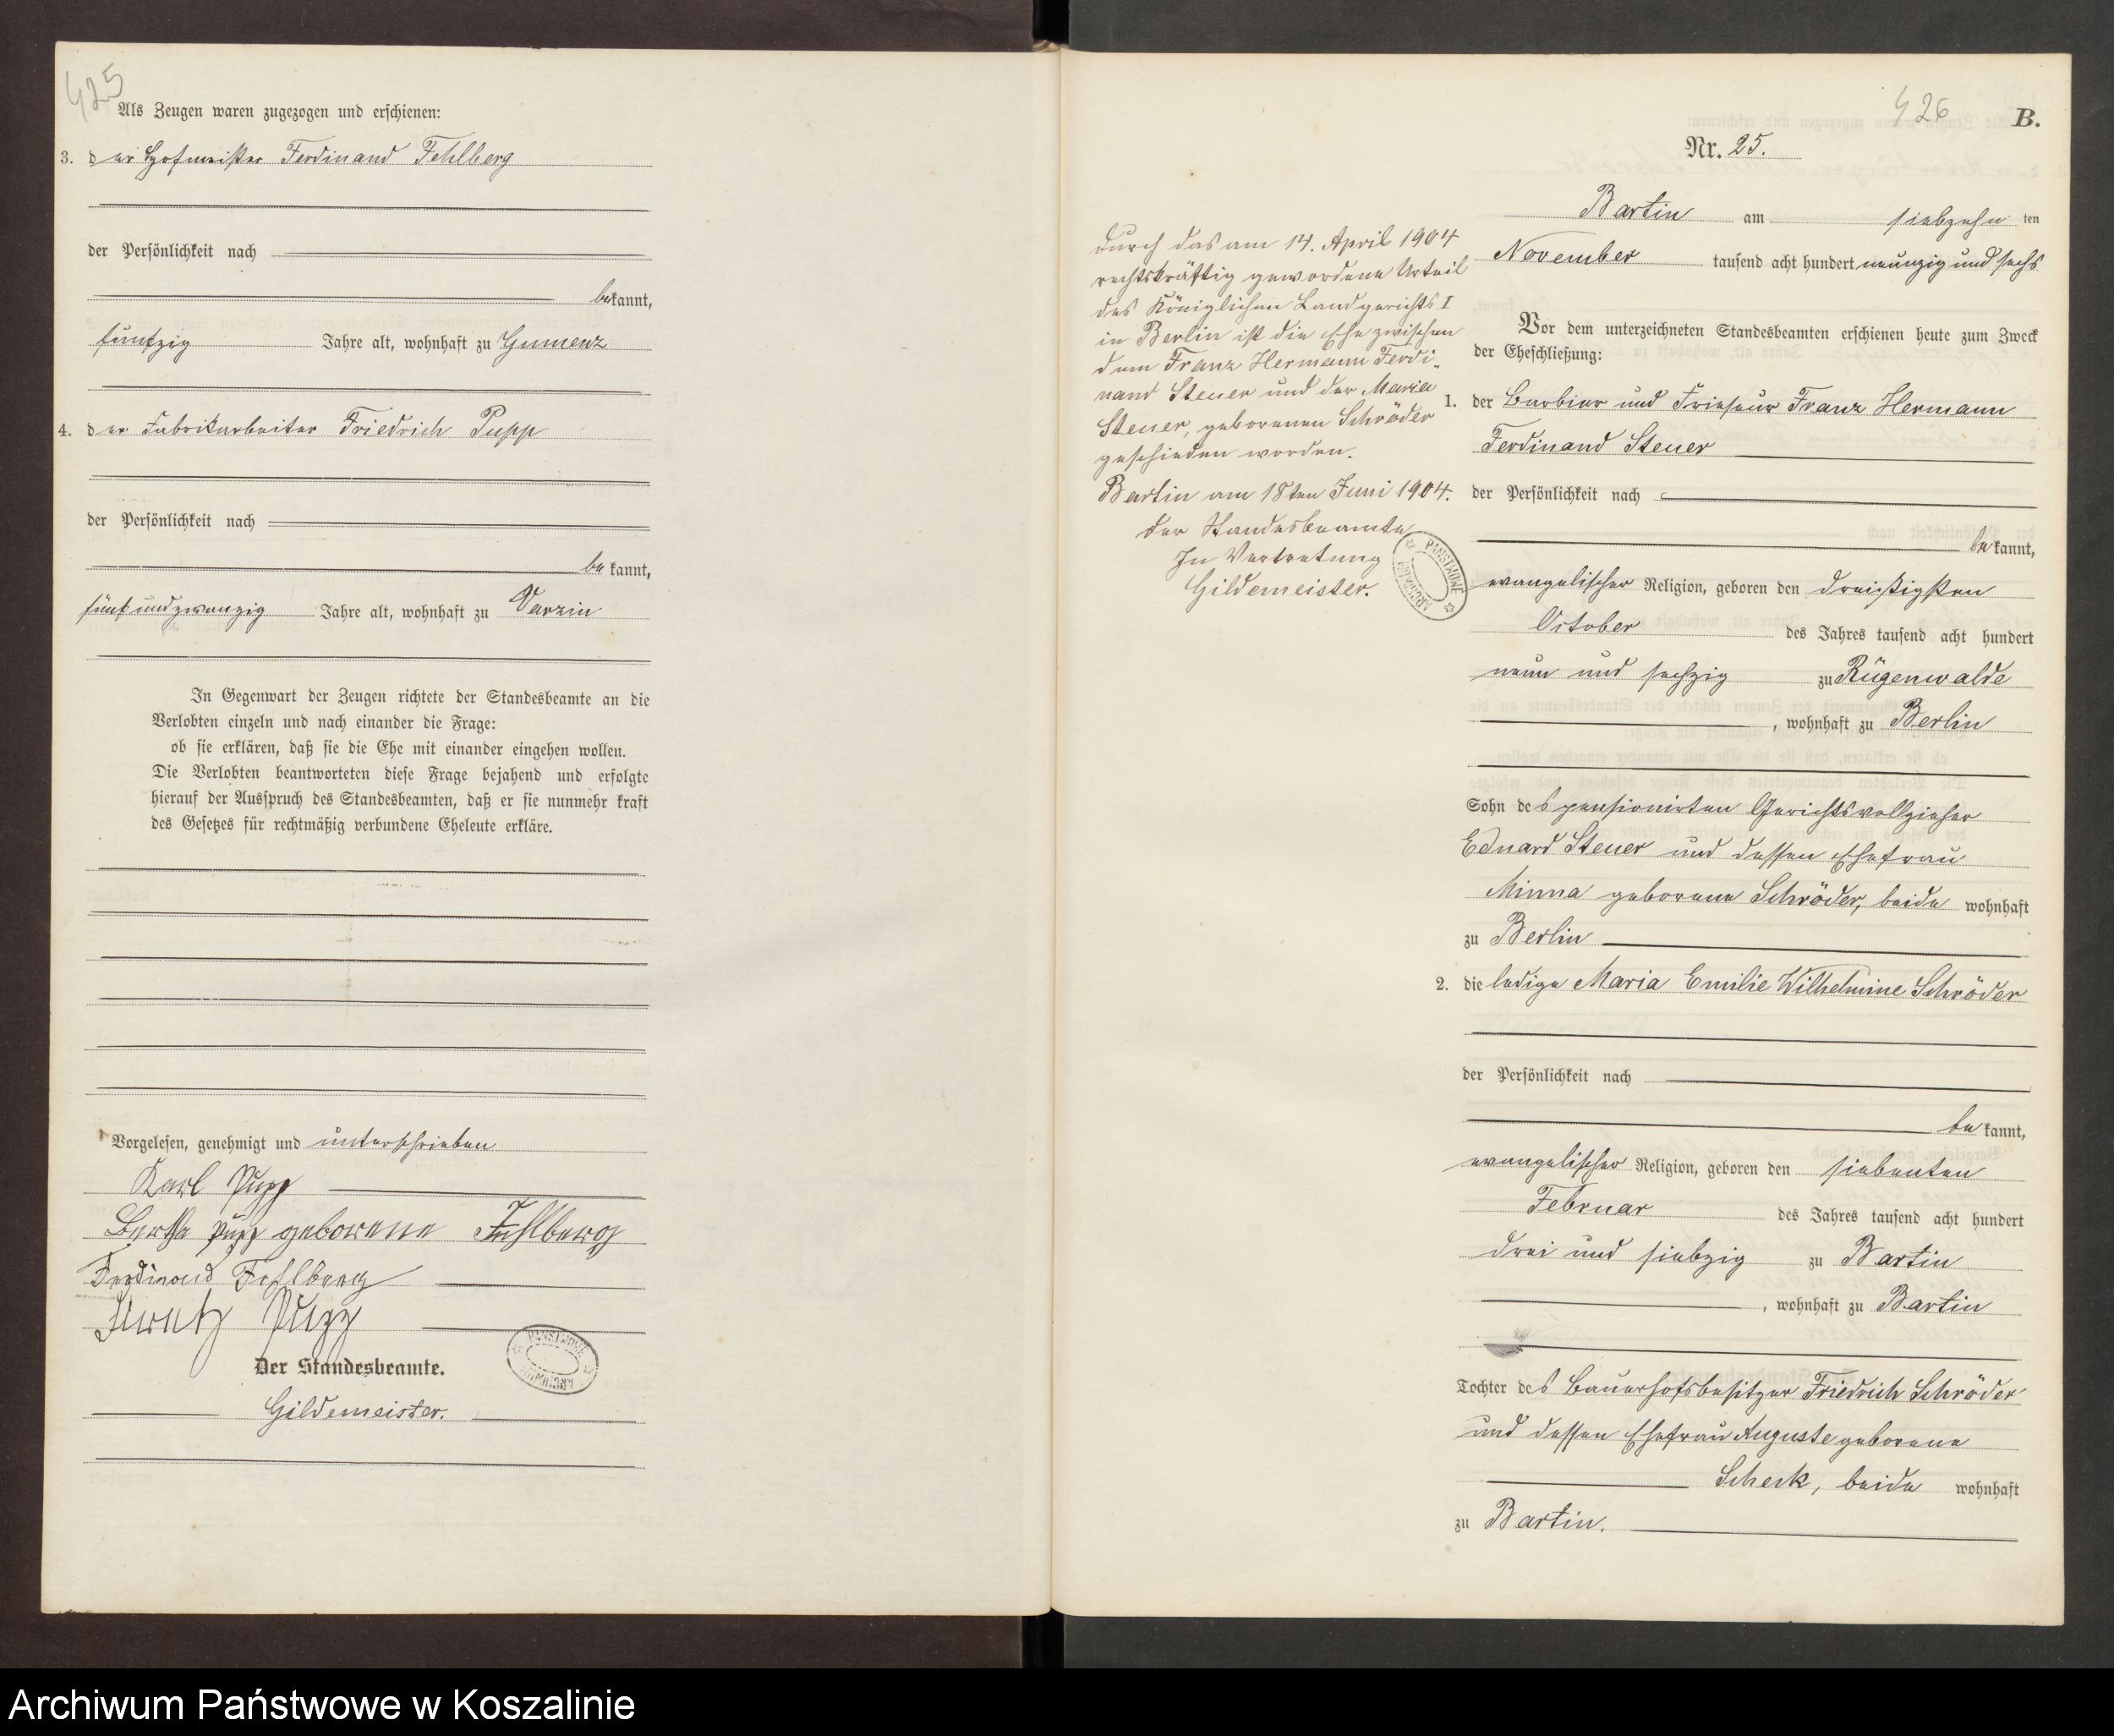 425
Als Zeugen waren zugezogen und erschienen:
3. der Hofmeister Ferdinand Fehlberg
der Persönlichkeit nach
bekannt,
fünfzig Jahre alt, wohnhaft zu Gumenz
4. der Fabrikarbeiter Friedrich Pupp
der Persönlichkeit nach
bekannt,
fünfundzwanzig Jahre alt, wohnhaft zu Varzin
In Gegenwart der Zeugen richtete der Standesbeamte an die
Verlobten einzeln und nach einander die Frage:
ob sie erklären, daß sie die Ehe mit einander eingehen wollen.
Die Verlobten beantworteten diese Frage bejahend und erfolgte
hierauf der Ausspruch des Standesbeamten, daß er sie nunmehr kraft
des Gesetzes für rechtmäßig verbundene Eheleute erkläre.
Vorgelesen, genehmigt und unterschrieben
Karl Pupp
Bertha Pupp geborene Fehlberg
Ferdinand Fehlberg
Pupp
Der Standesbeamte.
Gildemeister.
PAŃSTWOWE ARCHIWUM
426
B.
Nr. 25.
Bartin am siebzehnten
November tausend acht hundert neunzig und sechs
Vor dem unterzeichneten Standesbeamten erschienen heute zum Zweck
der Eheschließung:
1. der Barbier und Friseur Franz Hermann
Ferdinand Steuer
der Persönlichkeit nach
bekannt,
evangelischer Religion, geboren den dreißigsten
October des Jahres tausend acht hundert
neun und sechzig zu Rügenwalde
, wohnhaft zu Berlin
Sohn des pensionirten Gerichtsvollzieher
Eduard Steuer und dessen Ehefrau
Minna geborene Schröder, beide wohnhaft
zu Berlin
2. die ledige Maria Emilie Wilhelmine Schröder
der Persönlichkeit nach
bekannt,
evangelischer Religion, geboren den siebenten
Februar des Jahres tausend acht hundert
drei und siebzig zu Bartin
, wohnhaft zu Bartin
Tochter des Bauerhofsbesitzer Friedrich Schröder
und dessen Ehefrau Auguste geborene
Scheck, beide wohnhaft
zu Bartin.
Durch das am 14. April 1904
rechtskräftig gewordene Urteil
des Königlichen Landgerichts I
in Berlin ist die Ehe zwischen
dem Franz Hermann Ferdi-
nand Steuer und der Maria
Steuer, geborenen Schröder
geschieden worden.
Bartin am 18ten Juni 1904.
Der Standesbeamte
In Vertretung
Gildemeister.
PAŃSTWOWE ARCHIWUM
Archiwum Państwowe w Koszalinie